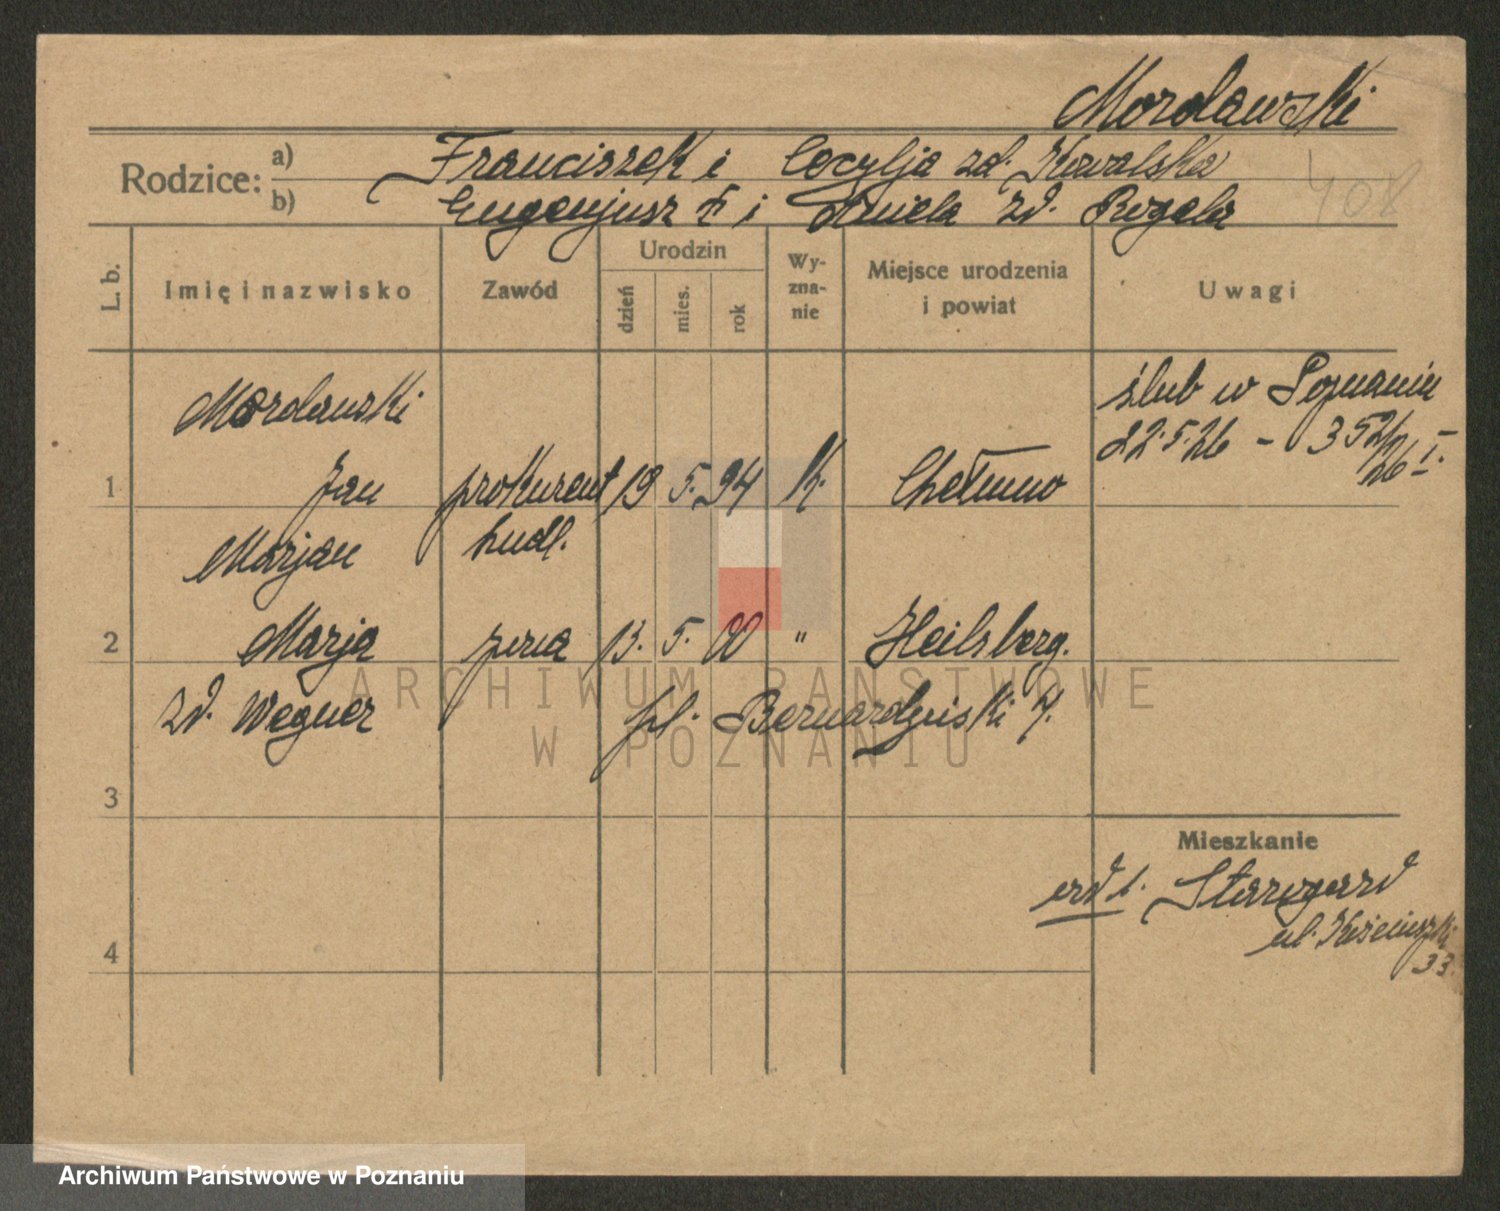 Mordawski
Rodzice:
a) Franciszek i Cecylja zd. Kowalska
b) Eugenjusz † i Aniela zd. Rogala
408
L. b.
Imię i nazwisko
Zawód
Urodzin
dzień
mies.
rok
Wy-
zna-
nie
Miejsce urodzenia
i powiat
Uwagi
Mordawski
ślub w Poznaniu
22.5.26 - 352/26 I.
1 Jan prokurent 19 5. 94 K. Chełmno
Marjan handl.
2 Marja żona 13. 5. 00 " Heilsberg.
zd. Wegner pl. Bernardyński 4.
3
Mieszkanie
Starogard
ul. Kościuszki
33.
4
ARCHIWUM PAŃSTWOWE
W POZNANIU
Archiwum Państwowe w Poznaniu